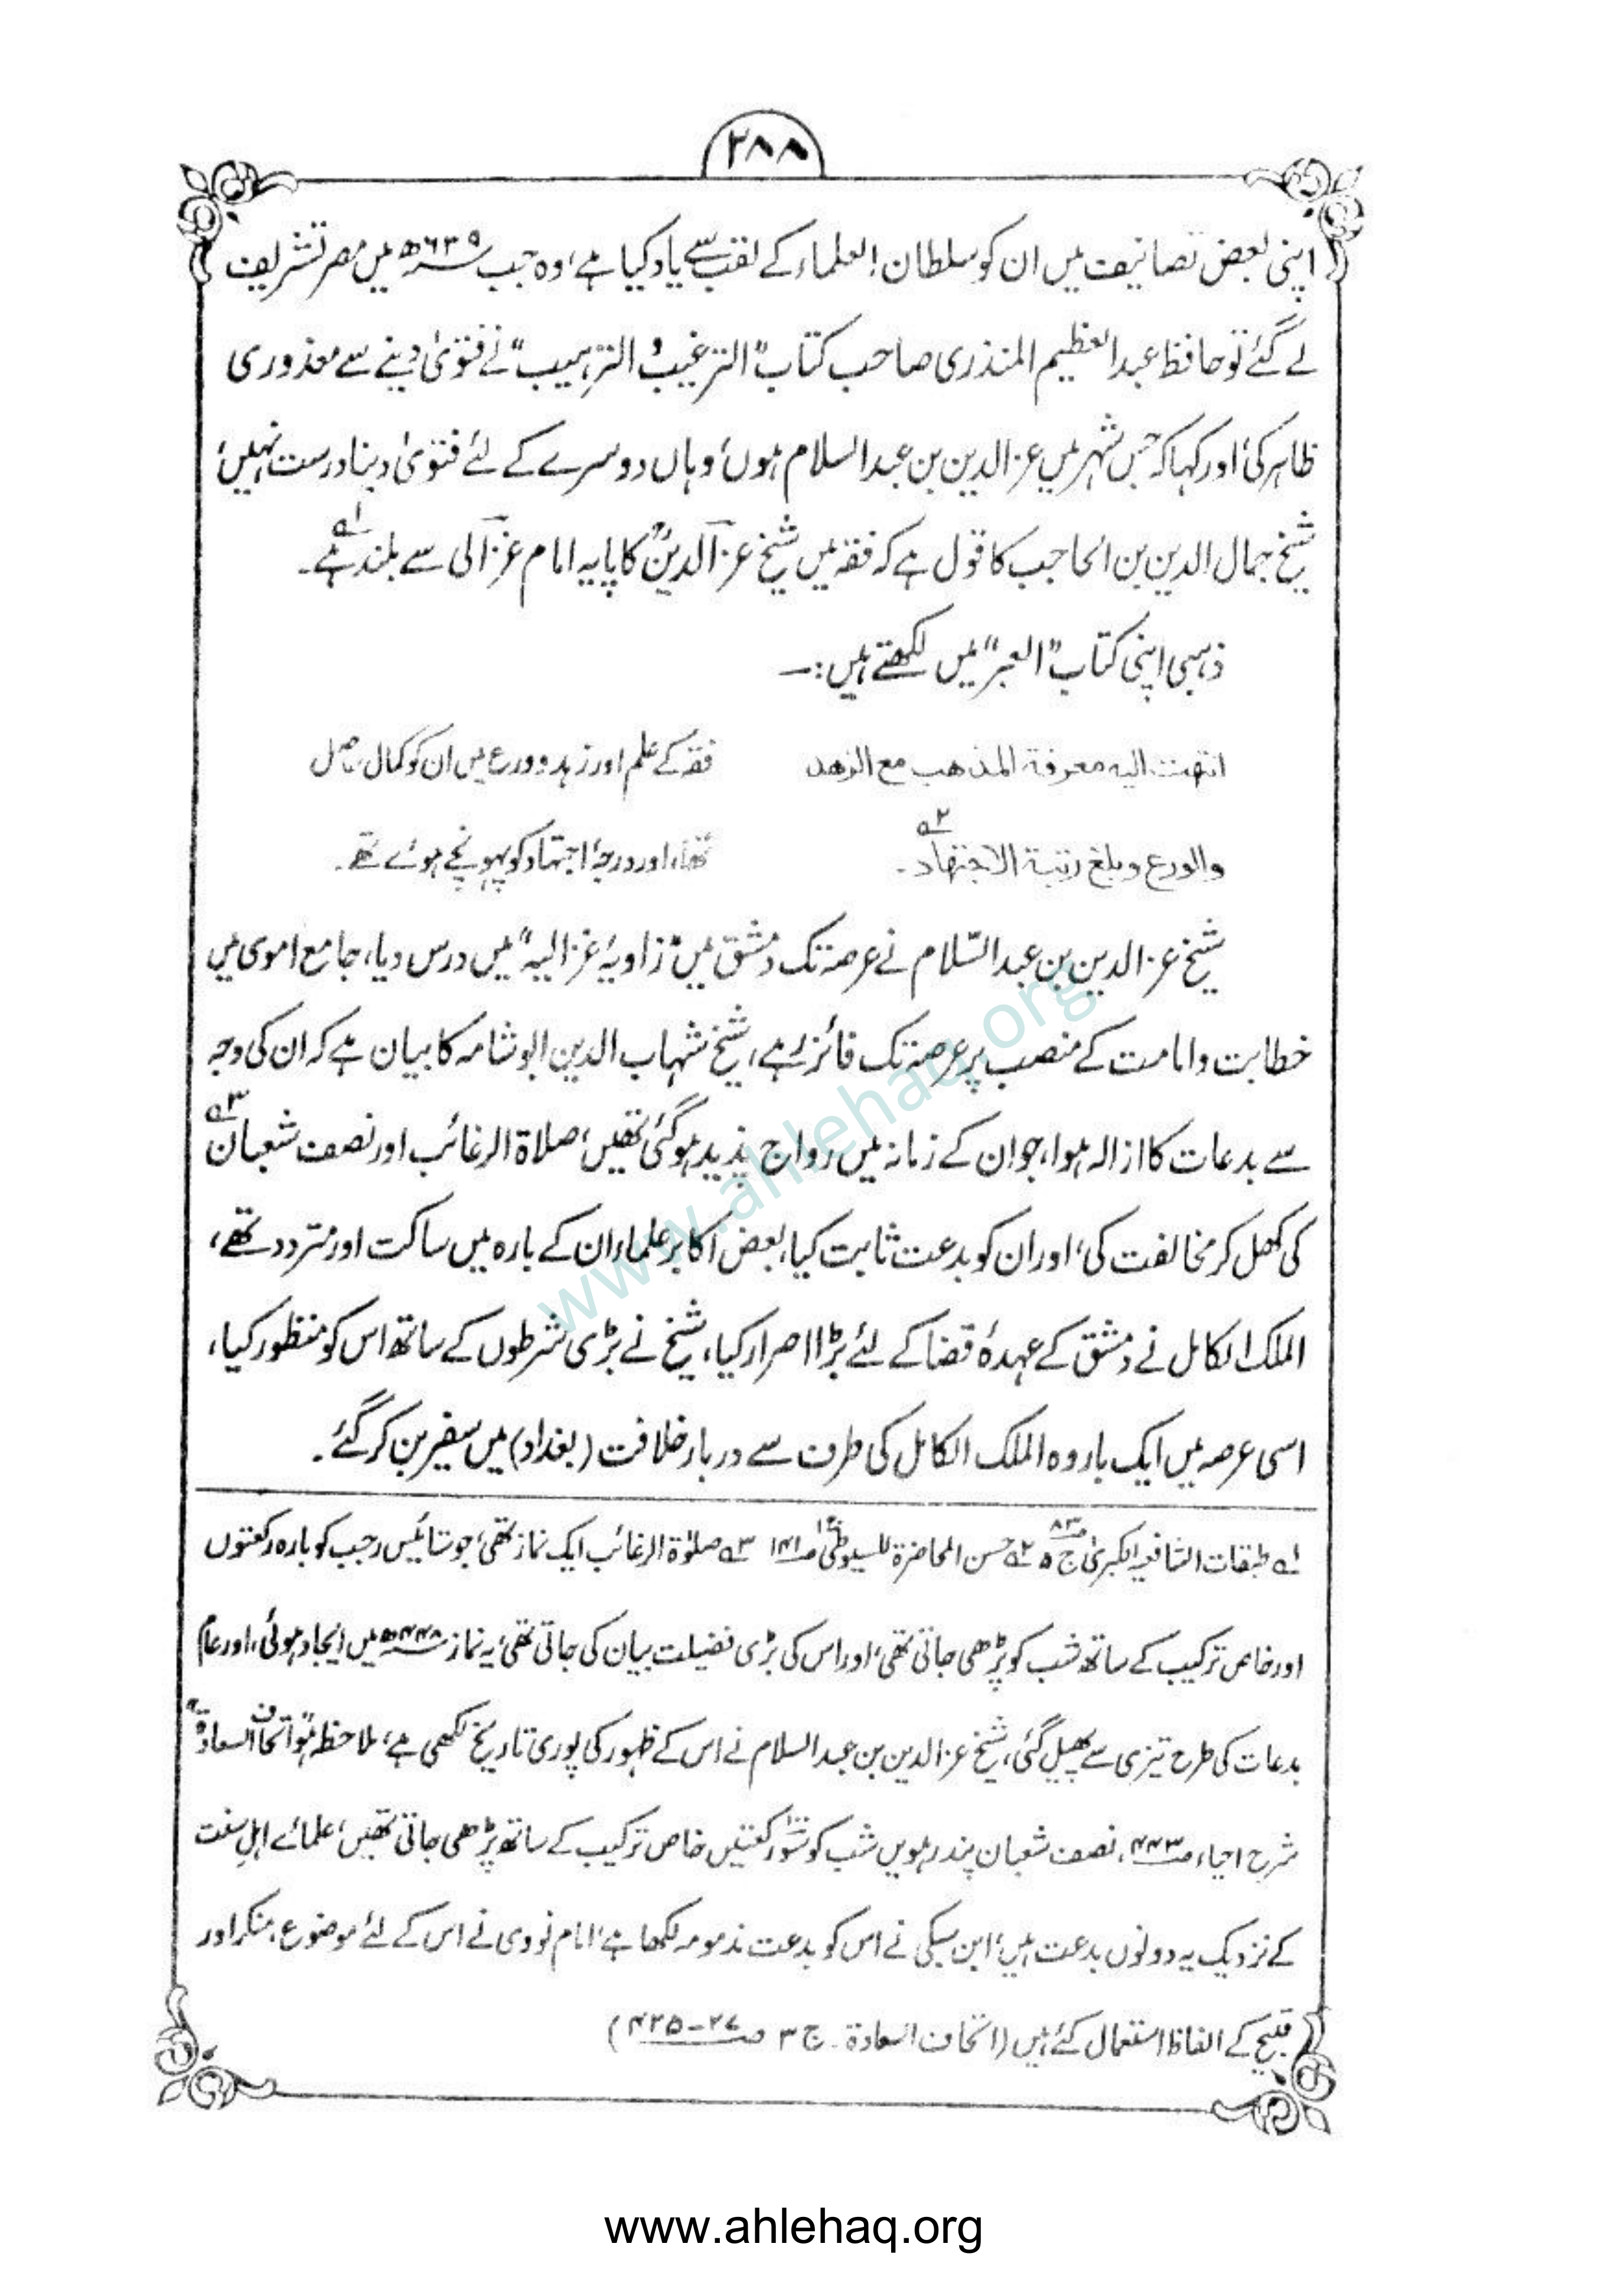 ۲۸۸
اپنی بعض تصانیف میں ان کو سلطان العلماء کے لقب سے یاد کیا ہے، وہ جب ۶۳۹ھ میں مصر تشریف
لے گئے تو حافظ عبدالعظیم المنذری صاحب کتاب "الترغیب و الترہیب" نے فتویٰ دینے سے معذوری
ظاہر کی، اور کہا کہ جس شہر میں عزالدین بن عبدالسلام ہوں، وہاں دوسرے کے لئے فتویٰ دینا درست نہیں،
شیخ جمال الدین بن الحاجب کا قول ہے کہ فقہ میں شیخ عزالدینؒ کا پایہ امام غزالی سے بلند ہے۔ ؂۱
ذہبی اپنی کتاب "العبر" میں لکھتے ہیں:۔
انتهت الیه معرفة المذهب مع الزهد
والورع وبلغ رتبة الاجتهاد۔ ؂۲
فقہ کے علم اور زہد و ورع میں ان کو کمال حاصل
تھا، اور درجۂ اجتہاد کو پہونچے ہوئے تھے۔
شیخ عزالدین بن عبدالسّلام نے عرصہ تک دمشق میں "زاویۂ غزالیہ" میں درس دیا، جامع اموی میں
خطابت و امامت کے منصب پر عرصہ تک فائز رہے، شیخ شہاب الدین ابو شامہ کا بیان ہے کہ ان کی وجہ
سے بدعات کا ازالہ ہوا، جو ان کے زمانہ میں رواج پذیر ہو گئی تھیں، صلاۃ الرغائب اور نصف شعبان ؂۳
کی کھل کر مخالفت کی، اور ان کو بدعت ثابت کیا، بعض اکابر علماء ان کے بارہ میں ساکت اور متردد تھے،
الملک الکامل نے دمشق کے عہدۂ قضا کے لئے بڑا اصرار کیا، شیخ نے بڑی شرطوں کے ساتھ اس کو منظور کیا،
اسی عرصہ میں ایک بار وہ الملک الکامل کی طرف سے دربار خلافت (بغداد) میں سفیر بن کر گئے۔
؂۱ طبقات الشافعیۃ الکبریٰ ج ۵ ص۸۳ ؂۲ حسن المحاضرۃ للسیوطیؒ ص۱۴۱ ؂۳ صلوٰۃ الرغائب ایک نماز تھی، جو ستائیس رجب کو بارہ رکعتوں
اور خاص ترکیب کے ساتھ شب کو پڑھی جاتی تھی، اور اس کی بڑی فضیلت بیان کی جاتی تھی، یہ نماز ۴۴۸ھ میں ایجاد ہوئی، اور عام
بدعات کی طرح تیزی سے پھیل گئی، شیخ عزالدین بن عبدالسلام نے اس کے ظہور کی پوری تاریخ لکھی ہے، ملاحظہ ہو "اتحاف السعادۃ"
شرح احیاء ص۴۲۳، نصف شعبان پندرہویں شب کو سو۱۰۰ رکعتیں خاص ترکیب کے ساتھ پڑھی جاتی تھیں، علمائے اہل سنت
کے نزدیک یہ دونوں بدعت ہیں، ابن سبکی نے اس کو بدعت مذمومہ لکھا ہے، امام نووی نے اس کے لئے موضوع، منکر اور
قبیح کے الفاظ استعمال کئے ہیں (اتحاف السعادۃ۔ ج ۳ ص ۲۷-۴۲۵)
www.ahlehaq.org
www.ahlehaq.org